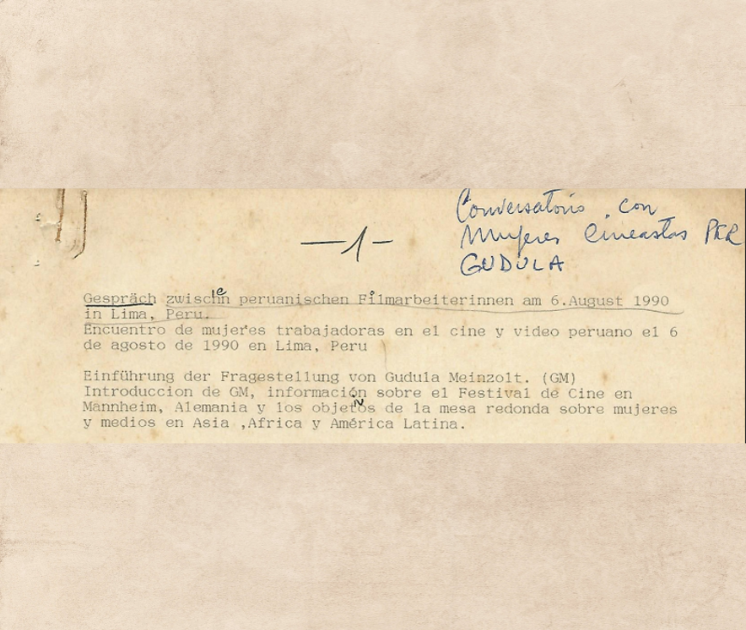 Conversatorio con
Mujeres Cineastas PER
GUDULA
—1—
Gespräch zwischen peruanischen Filmarbeiterinnen am 6.August 1990
in Lima, Peru.
Encuentro de mujeres trabajadoras en el cine y video peruano el 6
de agosto de 1990 en Lima, Peru
Einführung der Fragestellung von Gudula Meinzolt. (GM)
Introduccion de GM, información sobre el Festival de Cine en
Mannheim, Alemania y los objetos de la mesa redonda sobre mujeres
y medios en Asia ,Africa y América Latina.